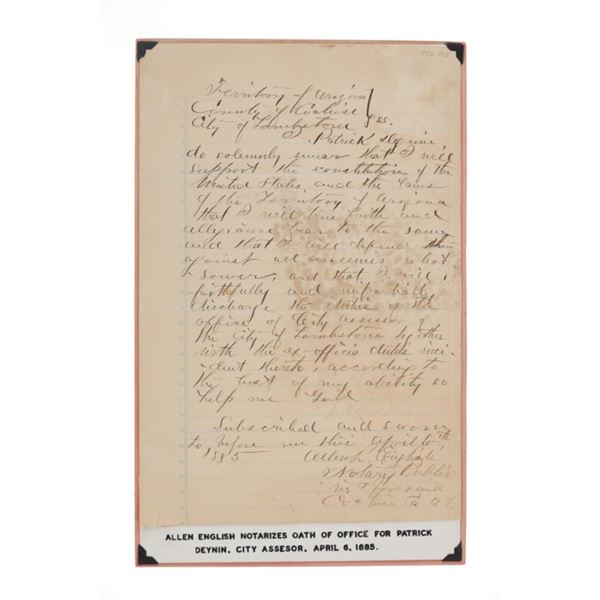 Territory of Arizona
County of Cochise
City of Tombstone } SS.
Patrick
do solemnly swear that I will
support the constitution of the
United States, and the Laws
of the Territory of Arizona
that I will true faith and
allegiance bear to the same
and that I will defend them
against all enemies what
-sower, and that I will,
faithfully and impartially
discharge the duties of the
office of City assessor of
the City of Tombstone together
with the ex officio duties inci-
dent thereto, according to
the best of my ability so
help me God
Subscribed and sworn
to before me this April 6th
1885 Allen English
Notary Public
in & for said
Cochise Co A T
ALLEN ENGLISH NOTARIZES OATH OF OFFICE FOR PATRICK
DEYNIN, CITY ASSESOR, APRIL 6, 1885.